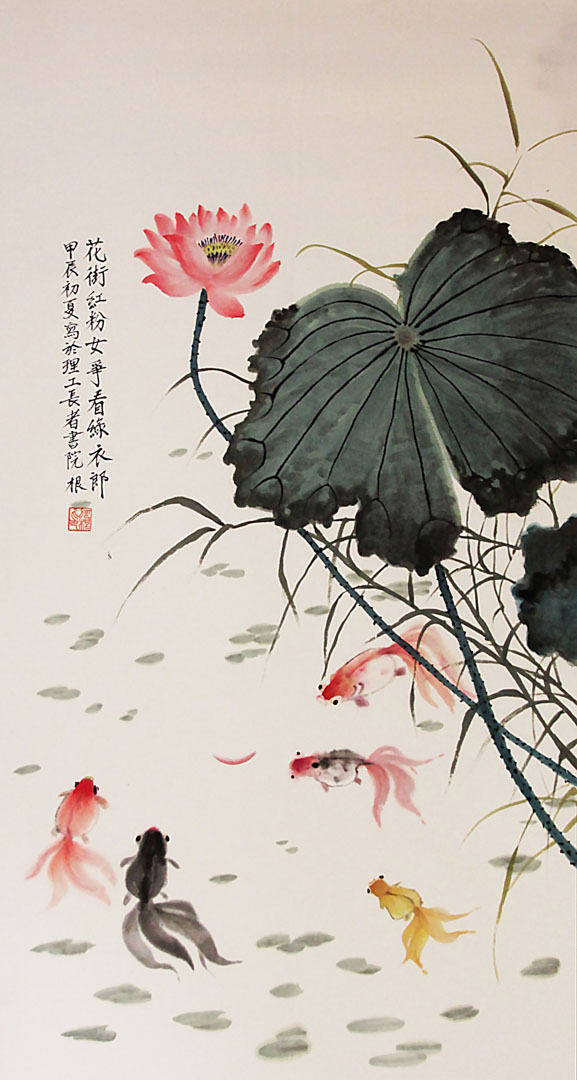 花街紅粉女爭看綠衣郎
甲辰初夏寫於理工長者書院 根